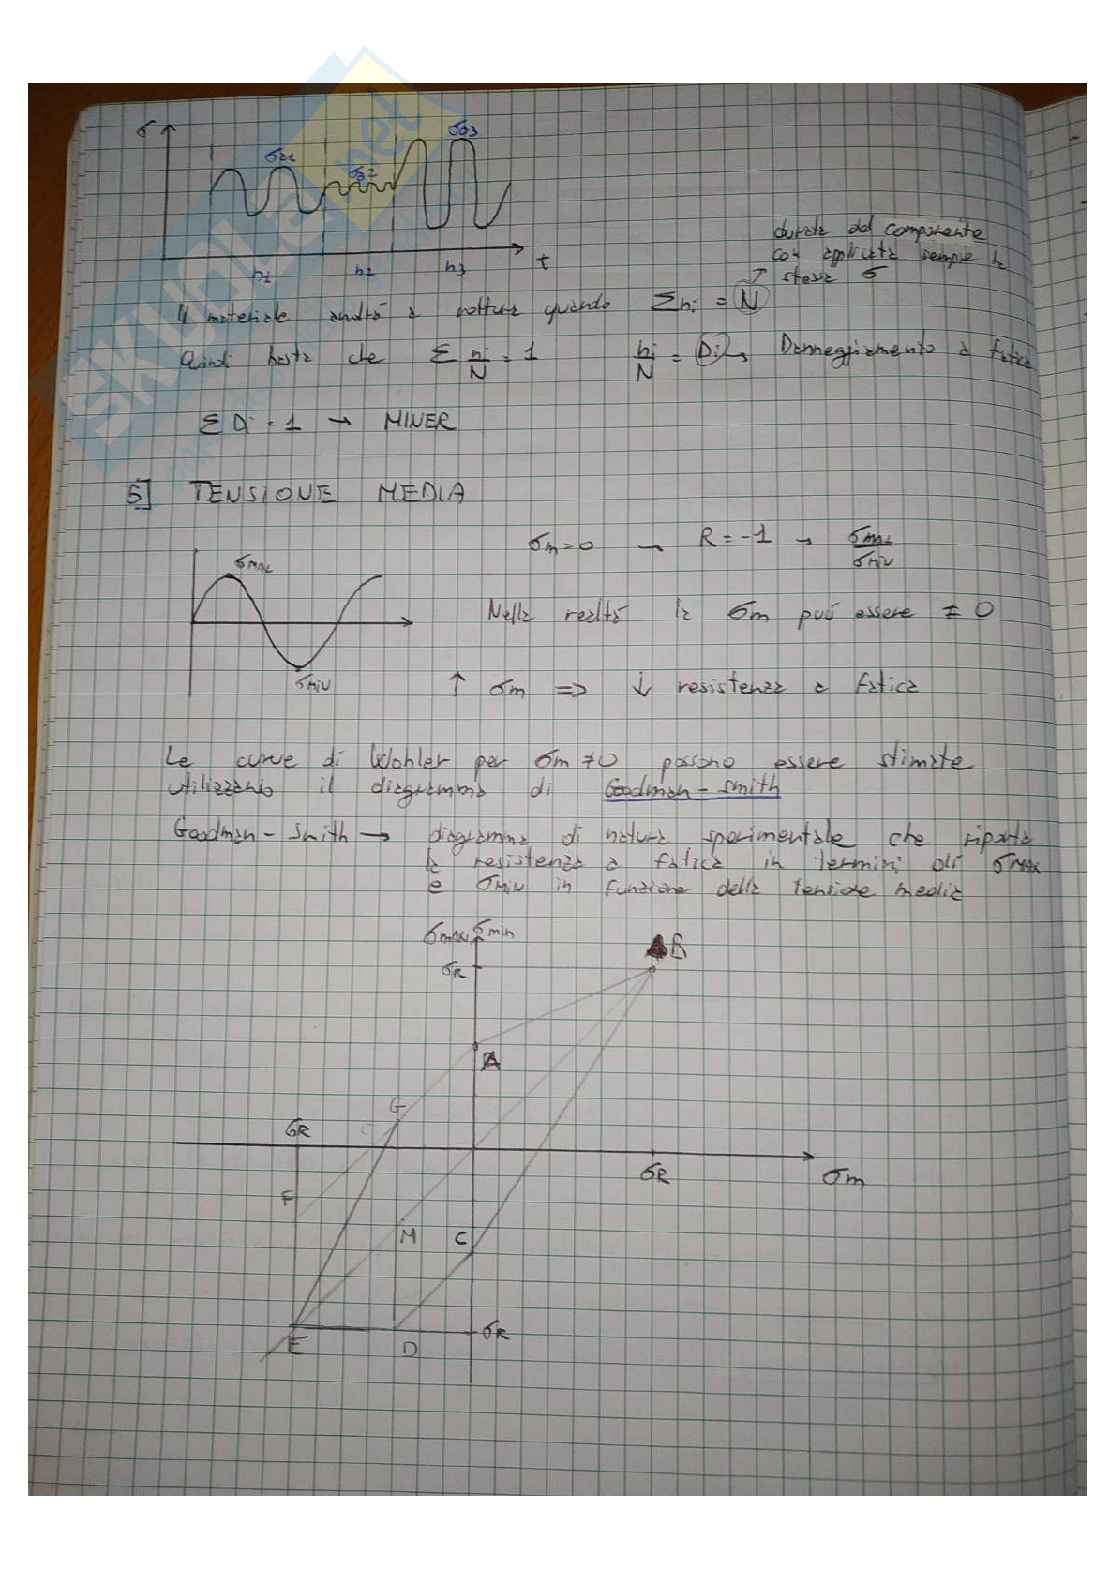 σ
σa1
σa2
σa3
n1 n2 n3 t
durata del componente
con applicata sempre la
stessa σ
Il materiale andrà a rottura quando Σni = N
Quindi basta che Σ ni/N = 1 ni/N = Di → Danneggiamento a fatica
Σ Di = 1 → MINER
5] TENSIONE MEDIA
σmax
σm=0 → R=-1 → σmax/σmin
Nella realtà la σm può essere ≠ 0
σmin
↑ σm => ↓ resistenza a fatica
Le curve di Wohler per σm ≠0 possono essere stimate
utilizzando il diagramma di Goodman-Smith
Goodman-Smith → diagramma di natura sperimentale che riporta
la resistenza a fatica in termini di σmax
e σmin in funzione della tensione media
σmax, σmin
B
σR
A
G
σR
σR
σm
F
M
C
σR
E
D
SKUOLA.net